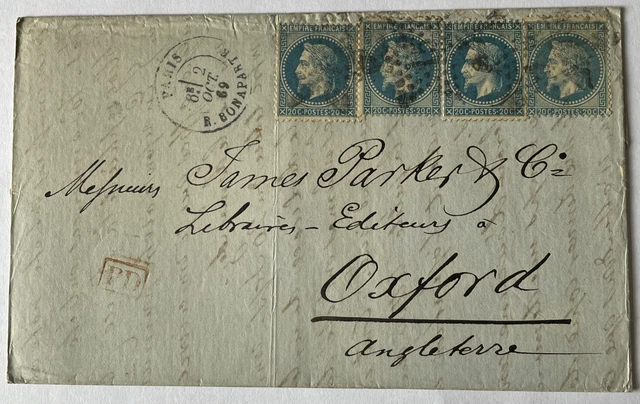 PARIS
6E 2
OCT.
69
R. BONAPARTE
EMPIRE FRANÇAIS
20C·POSTES·20C
EMPIRE FRANÇAIS
20C·POSTES·20C
EMPIRE FRANÇAIS
20C·POSTES·20C
EMPIRE FRANÇAIS
20C·POSTES·20C
Messieurs James Parker & Cie
Libraires-Editeurs à
PD
Oxford
Angleterre